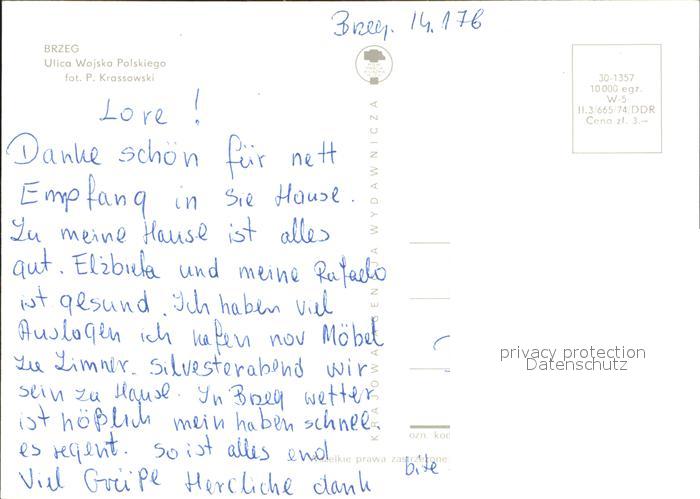 Brzeg. 14.1 76
BRZEG
Ulica Wojska Polskiego
fot. P. Krassowski
30-1357
10000 egz.
W-5
II.3/665/74/DDR
Cena zł. 3.—
Lore!
Danke schön für nett
Empfang in Sie Hause.
Zu meine Hause ist alles
gut. Elżbieta und meine Rafaelo
ist gesund. Ich haben viel
Auslagen ich nov Möbel
zu Zimner. Silvesterabend wir
sein zu Hause. In Brzeg wetter
ist hößlich mein haben schnee.
es regent. So ist alles end
Viel Grüße Hercliche dank
bite
KRAJOWA AGENCJA WYDAWNICZA
ozn. kod
Wszelkie prawa zastrzeżone
privacy protection
Datenschutz